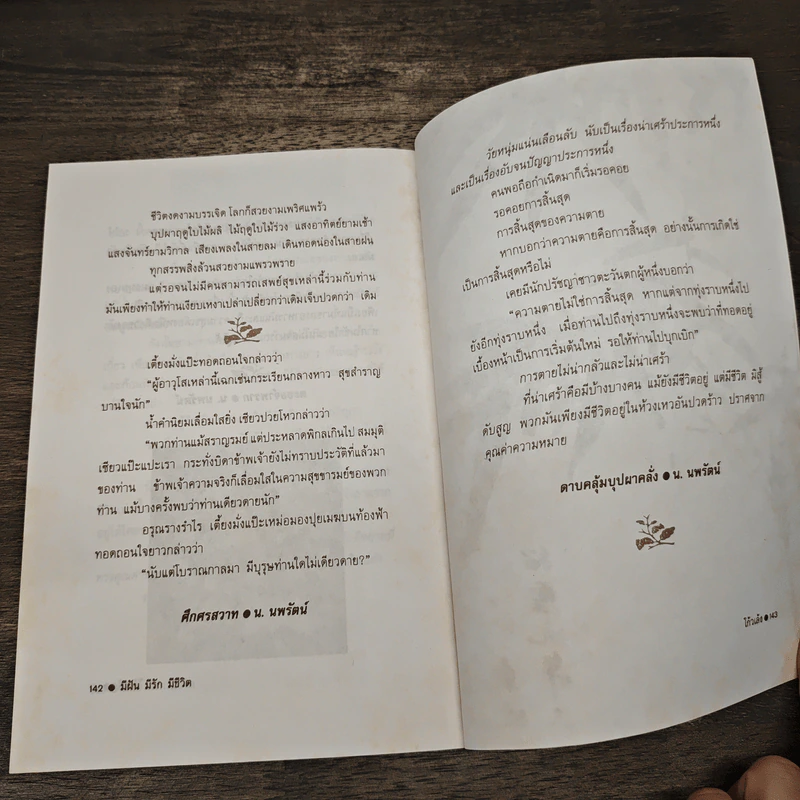 ชีวิตงดงามบรรเจิด โลกก็สวยงามเพริศแพร้ว
บุปผาฤดูใบไม้ผลิ ไม้ฤดูใบไม้ร่วง แสงอาทิตย์ยามเช้า
แสงจันทร์ยามวิกาล เสียงเพลงในสายลม เดินทอดน่องในสายฝน
ทุกสรรพสิ่งล้วนสวยงามแพรวพราย
แต่รอจนไม่มีคนสามารถเสพย์สุขเหล่านี้ร่วมกับท่าน
มันเพียงทำให้ท่านเงียบเหงาเปล่าเปลี่ยวกว่าเดิมเจ็บปวดกว่า เดิม
เตี้ยงมั่งแป๊ะทอดถอนใจกล่าวว่า
“ผู้อาวุโสเหล่านี้เฉกเช่นกระเรียนกลางหาว สุขสำราญ
บานใจนัก”
น้ำคำนิยมเลื่อมใสยิ่ง เซียวปวยโหวกล่าวว่า
“พวกท่านแม้สราญรมย์ แต่ประหลาดพิกลเกินไป สมมุติ
เซียวแป๊ะแปะเรา กระทั่งบิดาข้าพเจ้ายังไม่ทราบประวัติที่แล้วมา
ของท่าน ข้าพเจ้าความจริงก็เลื่อมใสในความสุขชารมย์ของพวก
ท่าน แม้บางครั้งพบว่าท่านเดียวดายนัก”
อรุณรางรำไร เตี้ยงมั่งแป๊ะเหม่อมองปุยเมฆบนท้องฟ้า
ทอดถอนใจยาวกล่าวว่า
“นับแต่โบราณกาลมา มีบุรุษท่านใดไม่เดียวดาย?”
ศึกศรสวาท ● น. นพรัตน์
142 ● มีฝัน มีรัก มีชีวิต
วัยหนุ่มแน่นเลือนลับ นับเป็นเรื่องน่าเศร้าประการหนึ่ง
และเป็นเรื่องอับจนปัญญาประการหนึ่ง
คนพอถือกำเนิดมาก็เริ่มรอคอย
รอคอยการสิ้นสุด
การสิ้นสุดของความตาย
หากบอกว่าความตายคือการสิ้นสุด อย่างนั้นการเกิดใช่
เป็นการสิ้นสุดหรือไม่
เคยมีนักปรัชญาชาวตะวันตกผู้หนึ่งบอกว่า
“ความตายไม่ใช่การสิ้นสุด หากแต่จากทุ่งราบหนึ่งไป
ยังอีกทุ่งราบหนึ่ง เมื่อท่านไปถึงทุ่งราบหนึ่งจะพบว่าที่ทอดอยู่
เบื้องหน้าเป็นการเริ่มต้นใหม่ รอให้ท่านไปบุกเบิก”
การตายไม่น่ากลัวและไม่น่าเศร้า
ที่น่าเศร้าคือมีบ้างบางคน แม้ยังมีชีวิตอยู่ แต่มีชีวิต มิสู้
ดับสูญ พวกมันเพียงมีชีวิตอยู่ในห้วงเหวอันปวดร้าว ปราศจาก
คุณค่าความหมาย
ดาบคลุ้มบุปผาคลั่ง ● น. นพรัตน์
โก้วเล้ง ● 143